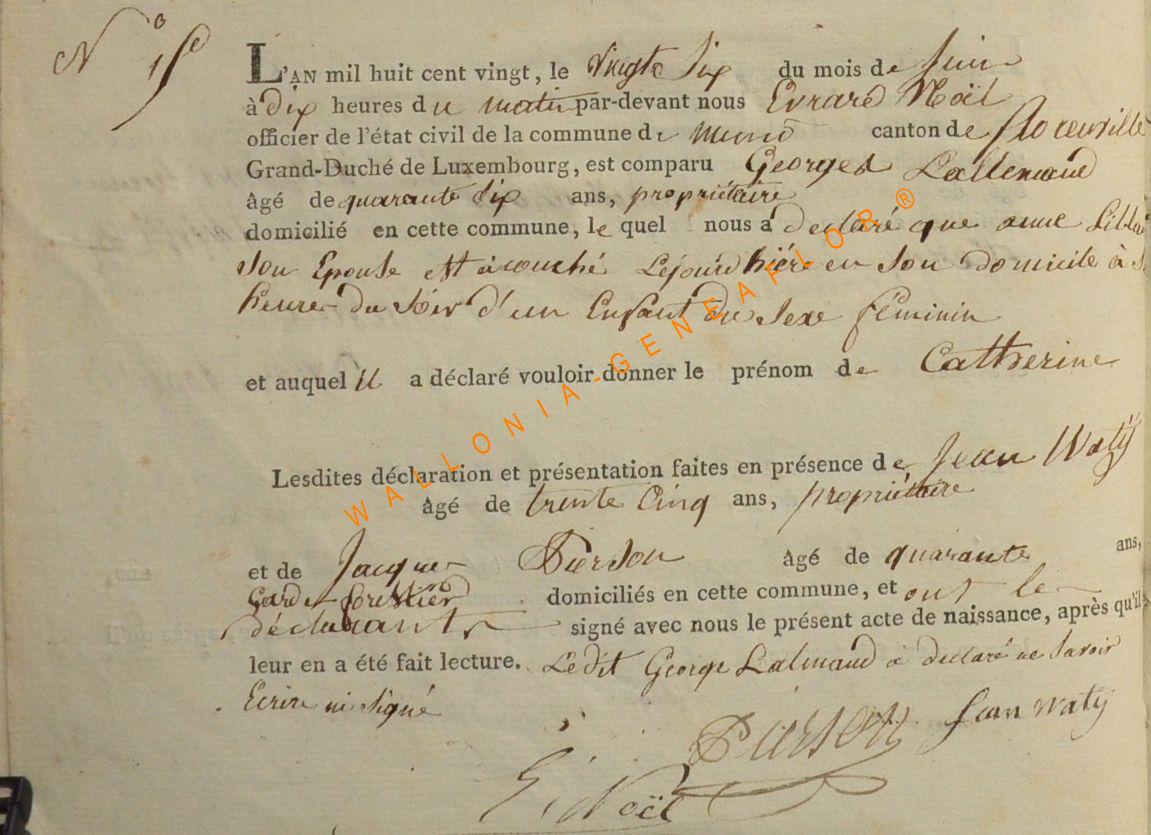 N° 15
L'AN mil huit cent vingt, le vingte Six du mois de Juin
à dix heures du matin par-devant nous Evrard Noël
officier de l'état civil de la commune de Muno canton de florenville
Grand-Duché de Luxembourg, est comparu Georges Lallemand
âgé de quarante Six ans, propriétaire
domicilié en cette commune, le quel nous a declaré que anne
son Epouse est acouché Lejourd hiére en son domicile à
heure du Soir d'un Enfant du Sexe féminin
et auquel il a déclaré vouloir donner le prénom de Catherine
Lesdites déclaration et présentation faites en présence de Jean Watÿ
âgé de trente Cinq ans, propriétaire
et de Jacque Pierson âgé de quarante ans,
Garde forestier domiciliés en cette commune, et ont le
déclarants signé avec nous le présent acte de naissance, après qu'il
leur en a été fait lecture. Ledit George Lalmand à declaré ne Savoir
Ecrire ni Signé
Pierson Jean Watÿ
E. Noël
WALLONIA-GENEAFLOR®